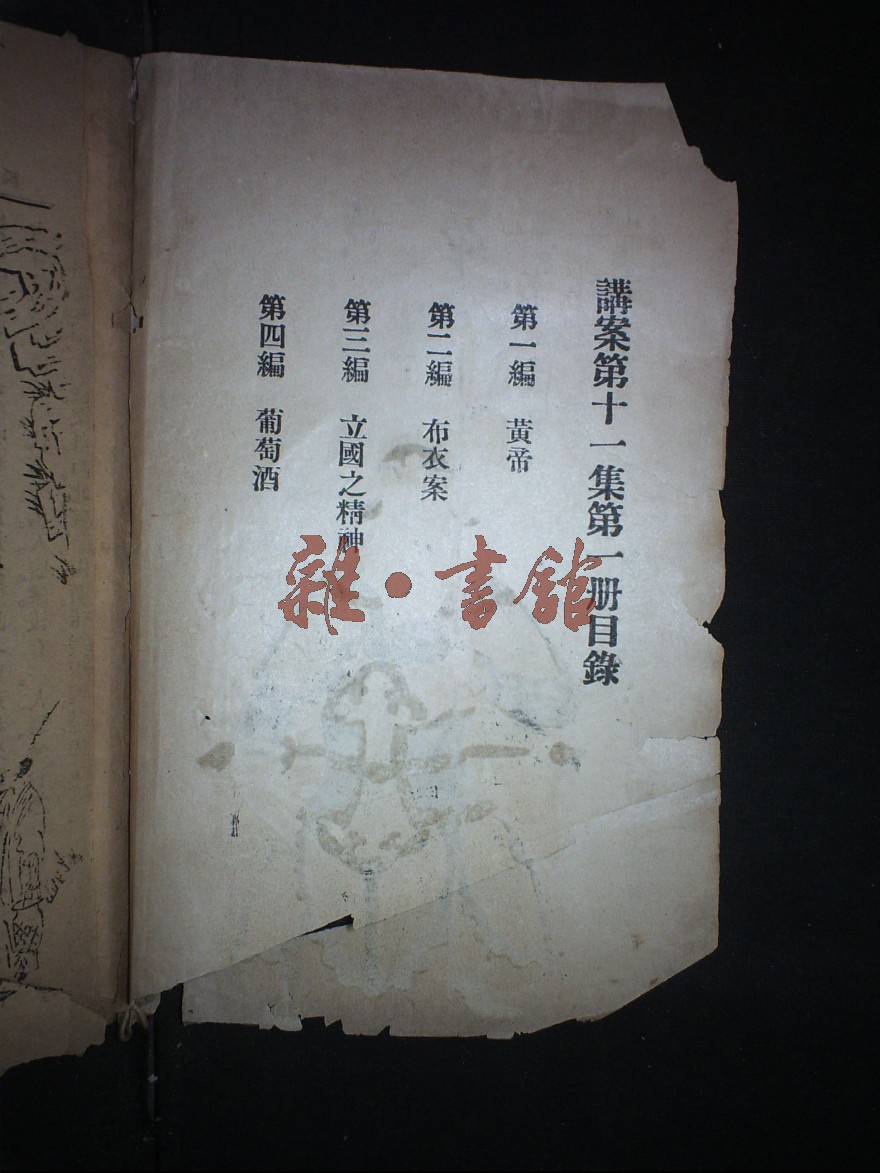 講案第十一集第一册目錄
第一編 黃帝
第二編 布衣案
第三編 立國之精神
第四編 葡萄酒
雜·書館